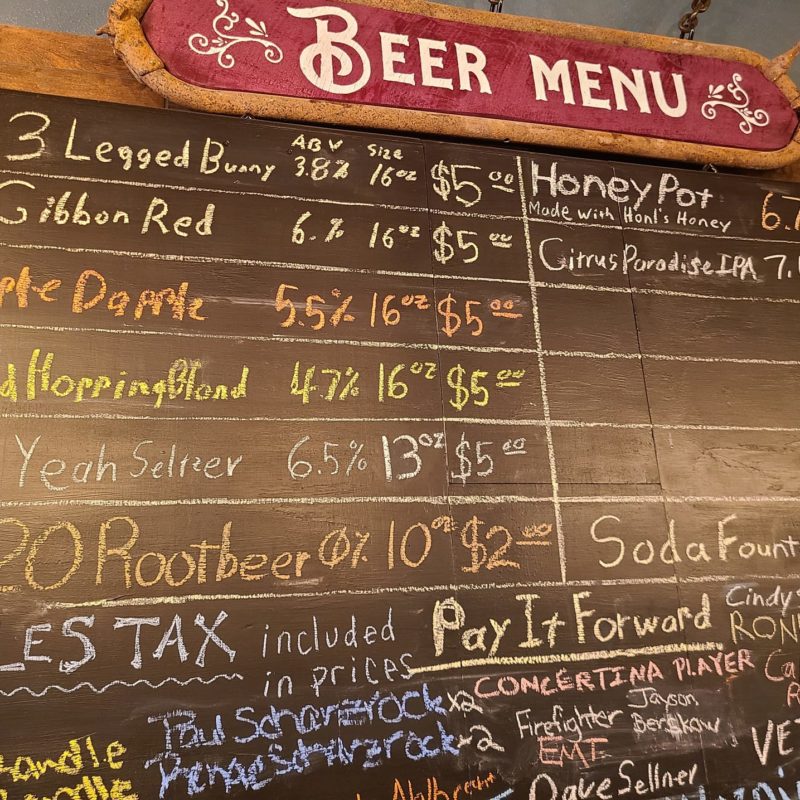 BEER MENU
ABV Size
3 Legged Bunny 3.8% 16oz $5.00
Gibbon Red 6.% 16oz $5.00
ple Dapple 5.5% 16oz $5.00
d Hopping Blond 4.7% 16oz $5.00
Yeah Seltzer 6.5% 13oz $5.00
20 Rootbeer 0% 10oz $2.00
Honey Pot 6.7
Made with Honl's Honey
Citrus Paradise IPA 7.
Soda Fount
LES TAX included
in prices
Paul Scharzrock x2
Renae Scharzrock x2
andle
Pay It Forward
CONCERTINA PLAYER
Firefighter
EMT
Jayson
Berskow
Dave Sellner
Cindy
RON
Ca
R
VE